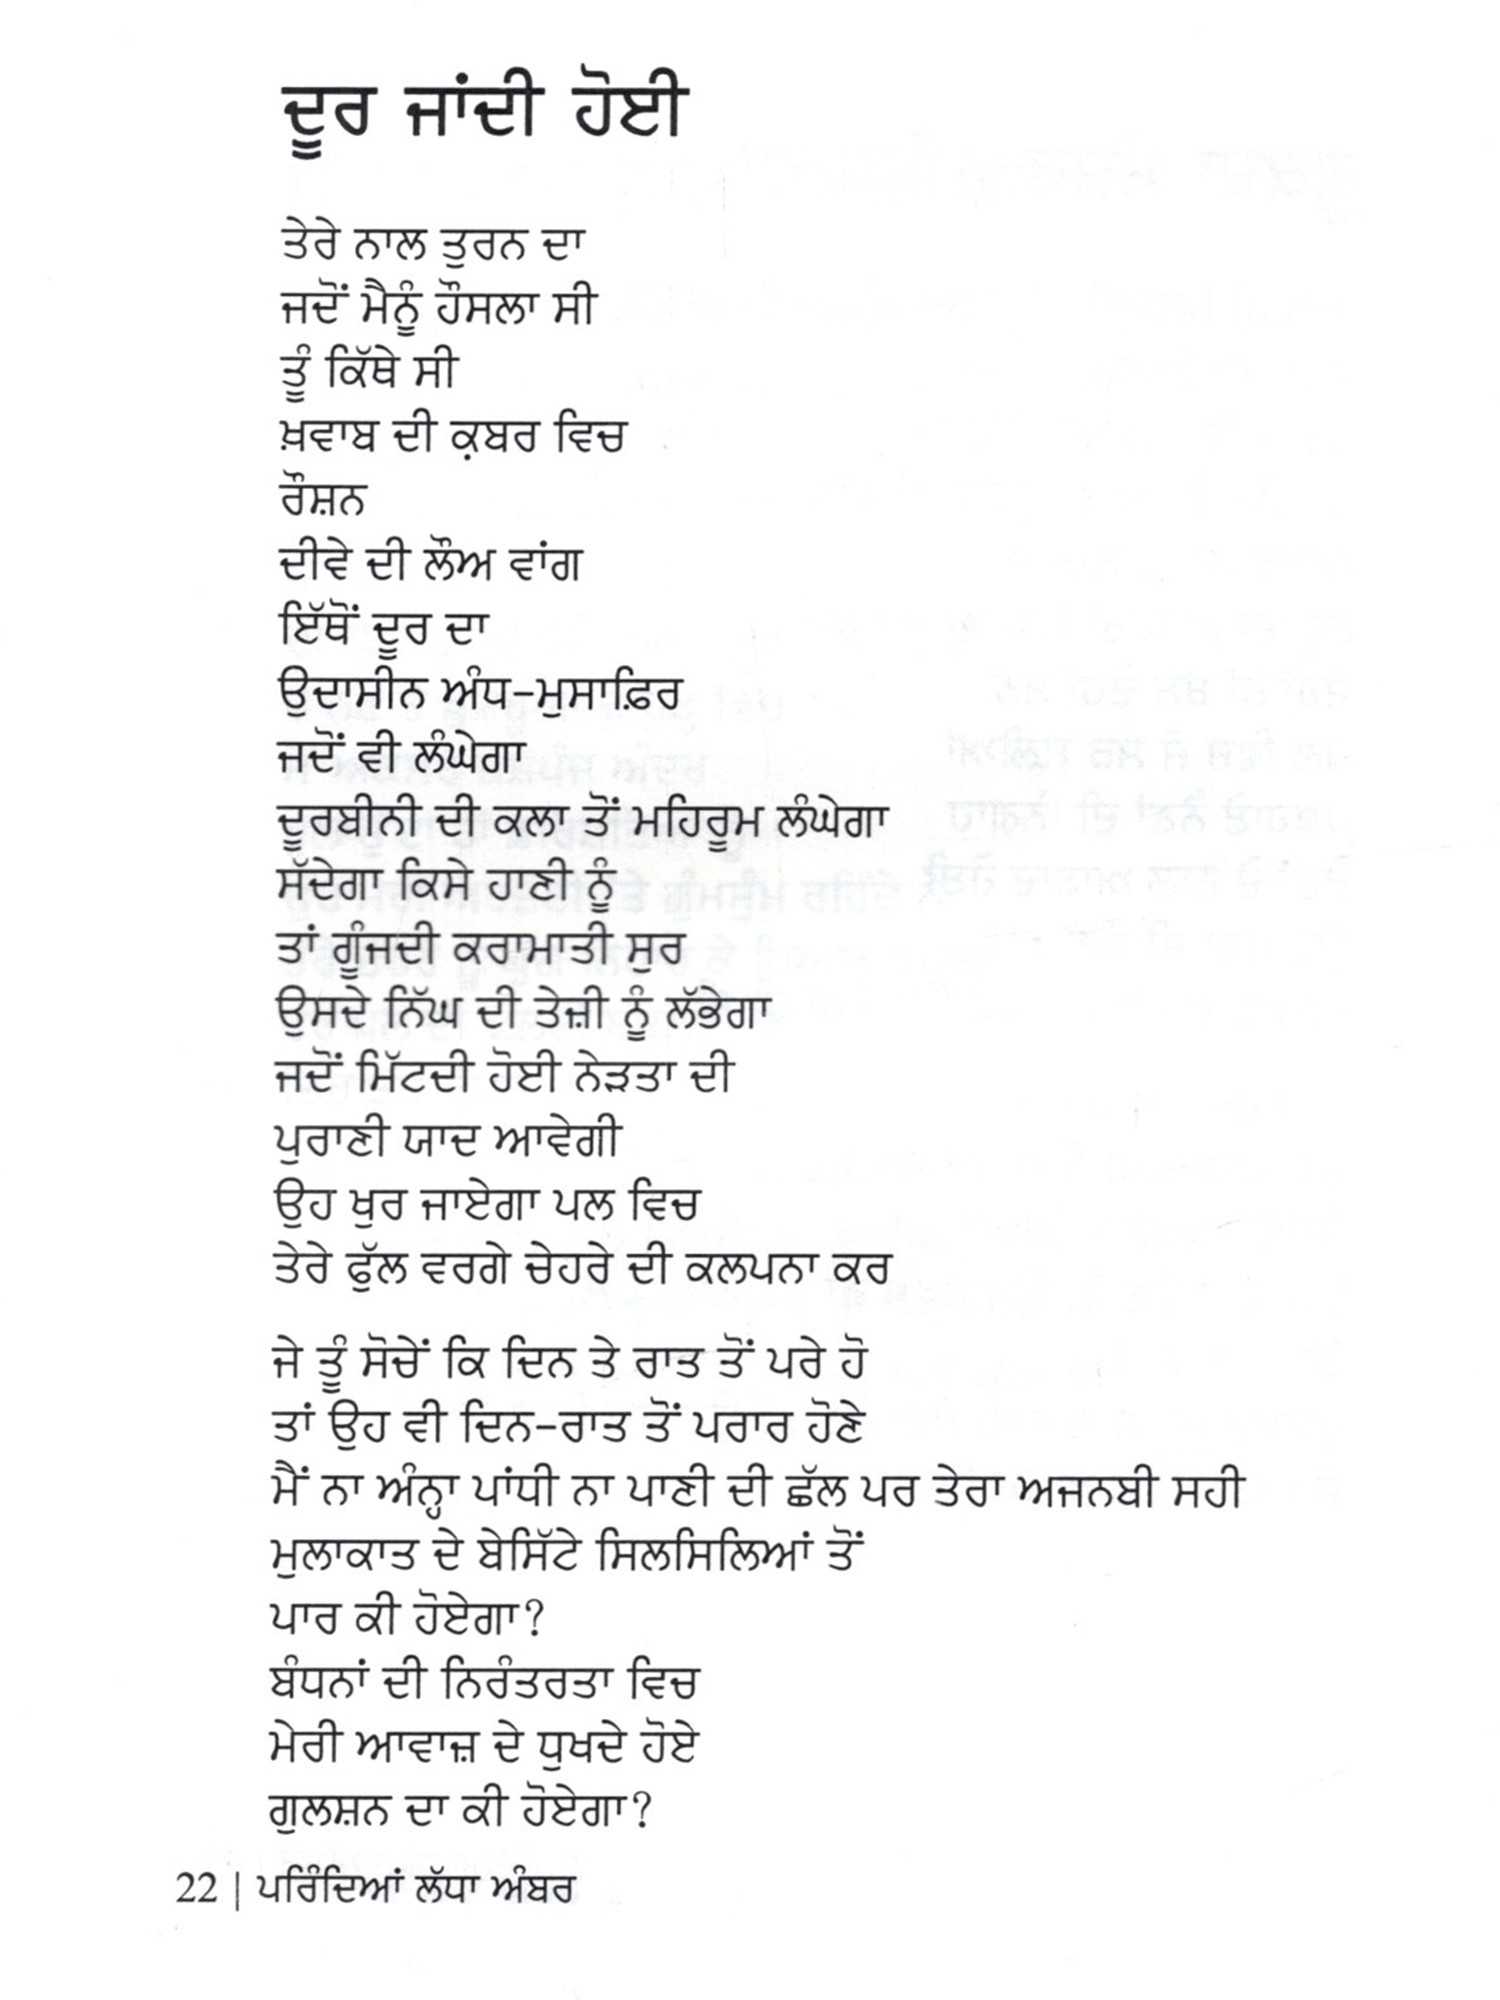 ਦੂਰ ਜਾਂਦੀ ਹੋਈ
ਤੇਰੇ ਨਾਲ ਤੁਰਨ ਦਾ
ਜਦੋਂ ਮੈਨੂੰ ਹੌਸਲਾ ਸੀ
ਤੂੰ ਕਿੱਥੇ ਸੀ
ਖ਼ਵਾਬ ਦੀ ਕ਼ਬਰ ਵਿਚ
ਰੌਸ਼ਨ
ਦੀਵੇ ਦੀ ਲੌਅ ਵਾਂਗ
ਇੱਥੋਂ ਦੂਰ ਦਾ
ਉਦਾਸੀਨ ਅੰਧ-ਮੁਸਾਫ਼ਿਰ
ਜਦੋਂ ਵੀ ਲੰਘੇਗਾ
ਦੂਰਬੀਨੀ ਦੀ ਕਲਾ ਤੋਂ ਮਹਿਰੂਮ ਲੰਘੇਗਾ
ਸੱਦੇਗਾ ਕਿਸੇ ਹਾਣੀ ਨੂੰ
ਤਾਂ ਗੂੰਜਦੀ ਕਰਾਮਾਤੀ ਸੁਰ
ਉਸਦੇ ਨਿੱਘ ਦੀ ਤੇਜ਼ੀ ਨੂੰ ਲੱਭੇਗਾ
ਜਦੋਂ ਮਿੱਟਦੀ ਹੋਈ ਨੇੜਤਾ ਦੀ
ਪੁਰਾਣੀ ਯਾਦ ਆਵੇਗੀ
ਉਹ ਖੁਰ ਜਾਏਗਾ ਪਲ ਵਿਚ
ਤੇਰੇ ਫੁੱਲ ਵਰਗੇ ਚੇਹਰੇ ਦੀ ਕਲਪਨਾ ਕਰ
ਜੇ ਤੂੰ ਸੋਚੇਂ ਕਿ ਦਿਨ ਤੇ ਰਾਤ ਤੋਂ ਪਰੇ ਹੋ
ਤਾਂ ਉਹ ਵੀ ਦਿਨ-ਰਾਤ ਤੋਂ ਪਰਾਰ ਹੋਣੇ
ਮੈਂ ਨਾ ਅੰਨ੍ਹਾ ਪਾਂਧੀ ਨਾ ਪਾਣੀ ਦੀ ਛੱਲ ਪਰ ਤੇਰਾ ਅਜਨਬੀ ਸਹੀ
ਮੁਲਾਕਾਤ ਦੇ ਬੇਸਿੱਟੇ ਸਿਲਸਿਲਿਆਂ ਤੋਂ
ਪਾਰ ਕੀ ਹੋਏਗਾ?
ਬੰਧਨਾਂ ਦੀ ਨਿਰੰਤਰਤਾ ਵਿਚ
ਮੇਰੀ ਆਵਾਜ਼ ਦੇ ਧੁਖਦੇ ਹੋਏ
ਗੁਲਸ਼ਨ ਦਾ ਕੀ ਹੋਏਗਾ?
22 | ਪਰਿੰਦਿਆਂ ਲੱਧਾ ਅੰਬਰ